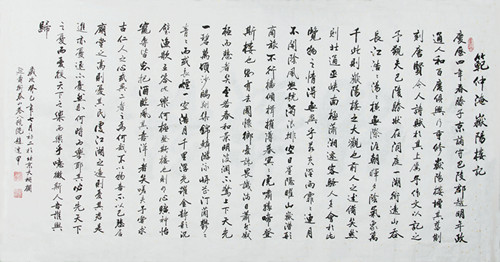 範仲淹嶽陽樓記
慶曆四年春滕子京謫守巴陵郡越明年政
通人和百廢俱興乃重修嶽陽樓增其舊制
刻唐賢今人詩賦於其上屬予作文以記之
予觀夫巴陵勝狀在洞庭一湖銜遠山吞
長江浩浩湯湯橫無際涯朝暉夕陰氣象萬
千此則嶽陽樓之大觀也前人之述備矣然
則北通巫峽南極瀟湘遷客騷人多會於此
覽物之情得無異乎若夫淫雨霏霏連月
不開陰風怒號濁浪排空日星隱曜山嶽潛形
商旅不行檣傾楫摧薄暮冥冥虎嘯猿啼登
斯樓也則有去國懷鄉憂讒畏譏滿目蕭然感
極而悲者矣至若春和景明波瀾不驚上下天光
一碧萬頃沙鷗翔集錦鱗游泳岸芷汀蘭鬱鬱
青青而或長煙一空皓月千里浮光躍金靜影沉
璧漁歌互答此樂何極登斯樓也則有心曠神怡
寵辱皆忘把酒臨風其喜洋洋者矣嗟夫予嘗求
古仁人之心或異二者之為何哉不以物喜不以己悲居
廟堂之高則憂其民處江湖之遠則憂其君是
進亦憂退亦憂然則何時而樂耶其必曰先天下
之憂而憂後天下之樂而樂乎噫微斯人吾誰與
歸
歲次癸巳年七月初二於北京